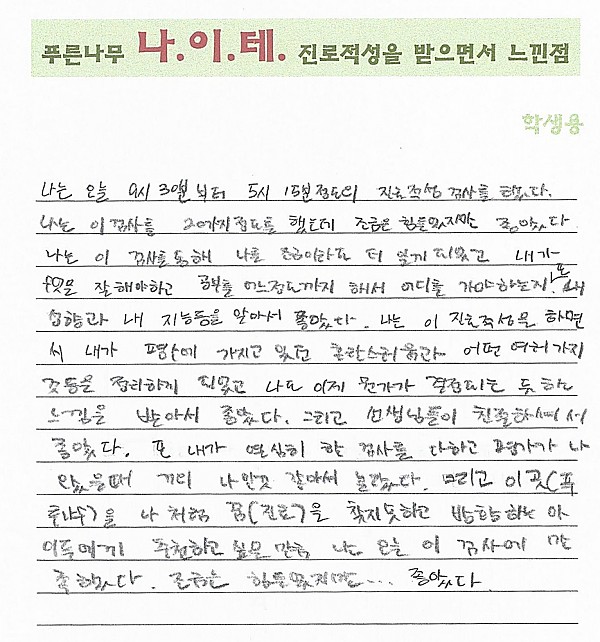 푸른나무 나.이.테. 진로적성을 받으면서 느낀점
학생용
나는 오늘 9시 30분부터 5시 15분정도의 진로적성 검사를 했다.
나는 이 검사를 20가지정도를 했는데 조금은 힘들었지만 좋았다
나는 이 검사를 통해 나를 조금이라도 더 알게 되었고 내가
잘해야하고 공부를 어느정도까지 해서 어디를 가야하는지! 또 내
성향과 내 지능등을 알아서 좋았다. 나는 이 진로적성을 하면
서 내가 평소에 가지고 있던 혼란스러움과 어떤 여러가지
것들을 정리하게 되었고 나도 이제 뭔가가 결정되는 듯 하는
느낌을 받아서 좋았다. 그리고 선생님들이 친절하셔서
좋았다. 또 내가 열심히 한 검사를 다하고 평가가 나
왔을때 거의 나인것 같아서 놀랐다. 그리고 이 곳(푸
른나무)을 나 처럼 꿈(진로)을 찾지못하고 방황하는 아
이들에게 추천하고 싶은 만큼 나는 오늘 이 검사에 만
족했다. 조금은 힘들었지만... 좋았다.